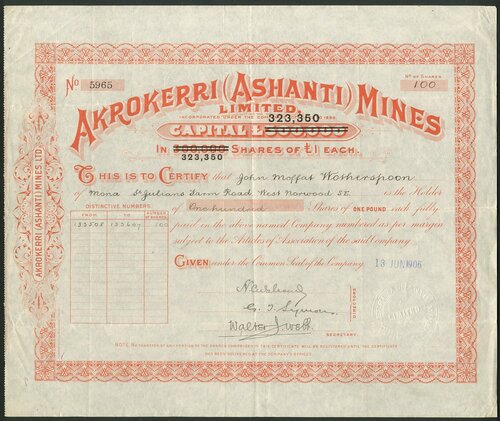 No 5965
No OF SHARES 100
AKROKERRI (ASHANTI) MINES
LIMITED.
INCORPORATED UNDER THE
323,350
CAPITAL £300,000
IN 300,000 SHARES OF £1 EACH.
323,350
THIS IS TO CERTIFY that John Moffat Wotherspoon
of Mona St Julians Farm Road West Norwood S.E. is the Holder
of One hundred Shares of ONE POUND each fully
paid in the above named Company numbered as per margin
subject to the Articles of Association of the said Company.
GIVEN under the Common Seal of the Company. 13 JUN 1906
DISTINCTIVE NUMBERS.
FROM TO NUMBER OF SHARES
100
DIRECTORS
Walter J. Webb
SECRETARY.
NOTE. NO TRANSFER OF ANY PORTION OF THE SHARES COMPRISED IN THIS CERTIFICATE WILL BE REGISTERED UNTIL THE CERTIFICATE
HAS BEEN DELIVERED AT THE COMPANY'S OFFICES.
AKROKERRI (ASHANTI) MINES LTD.